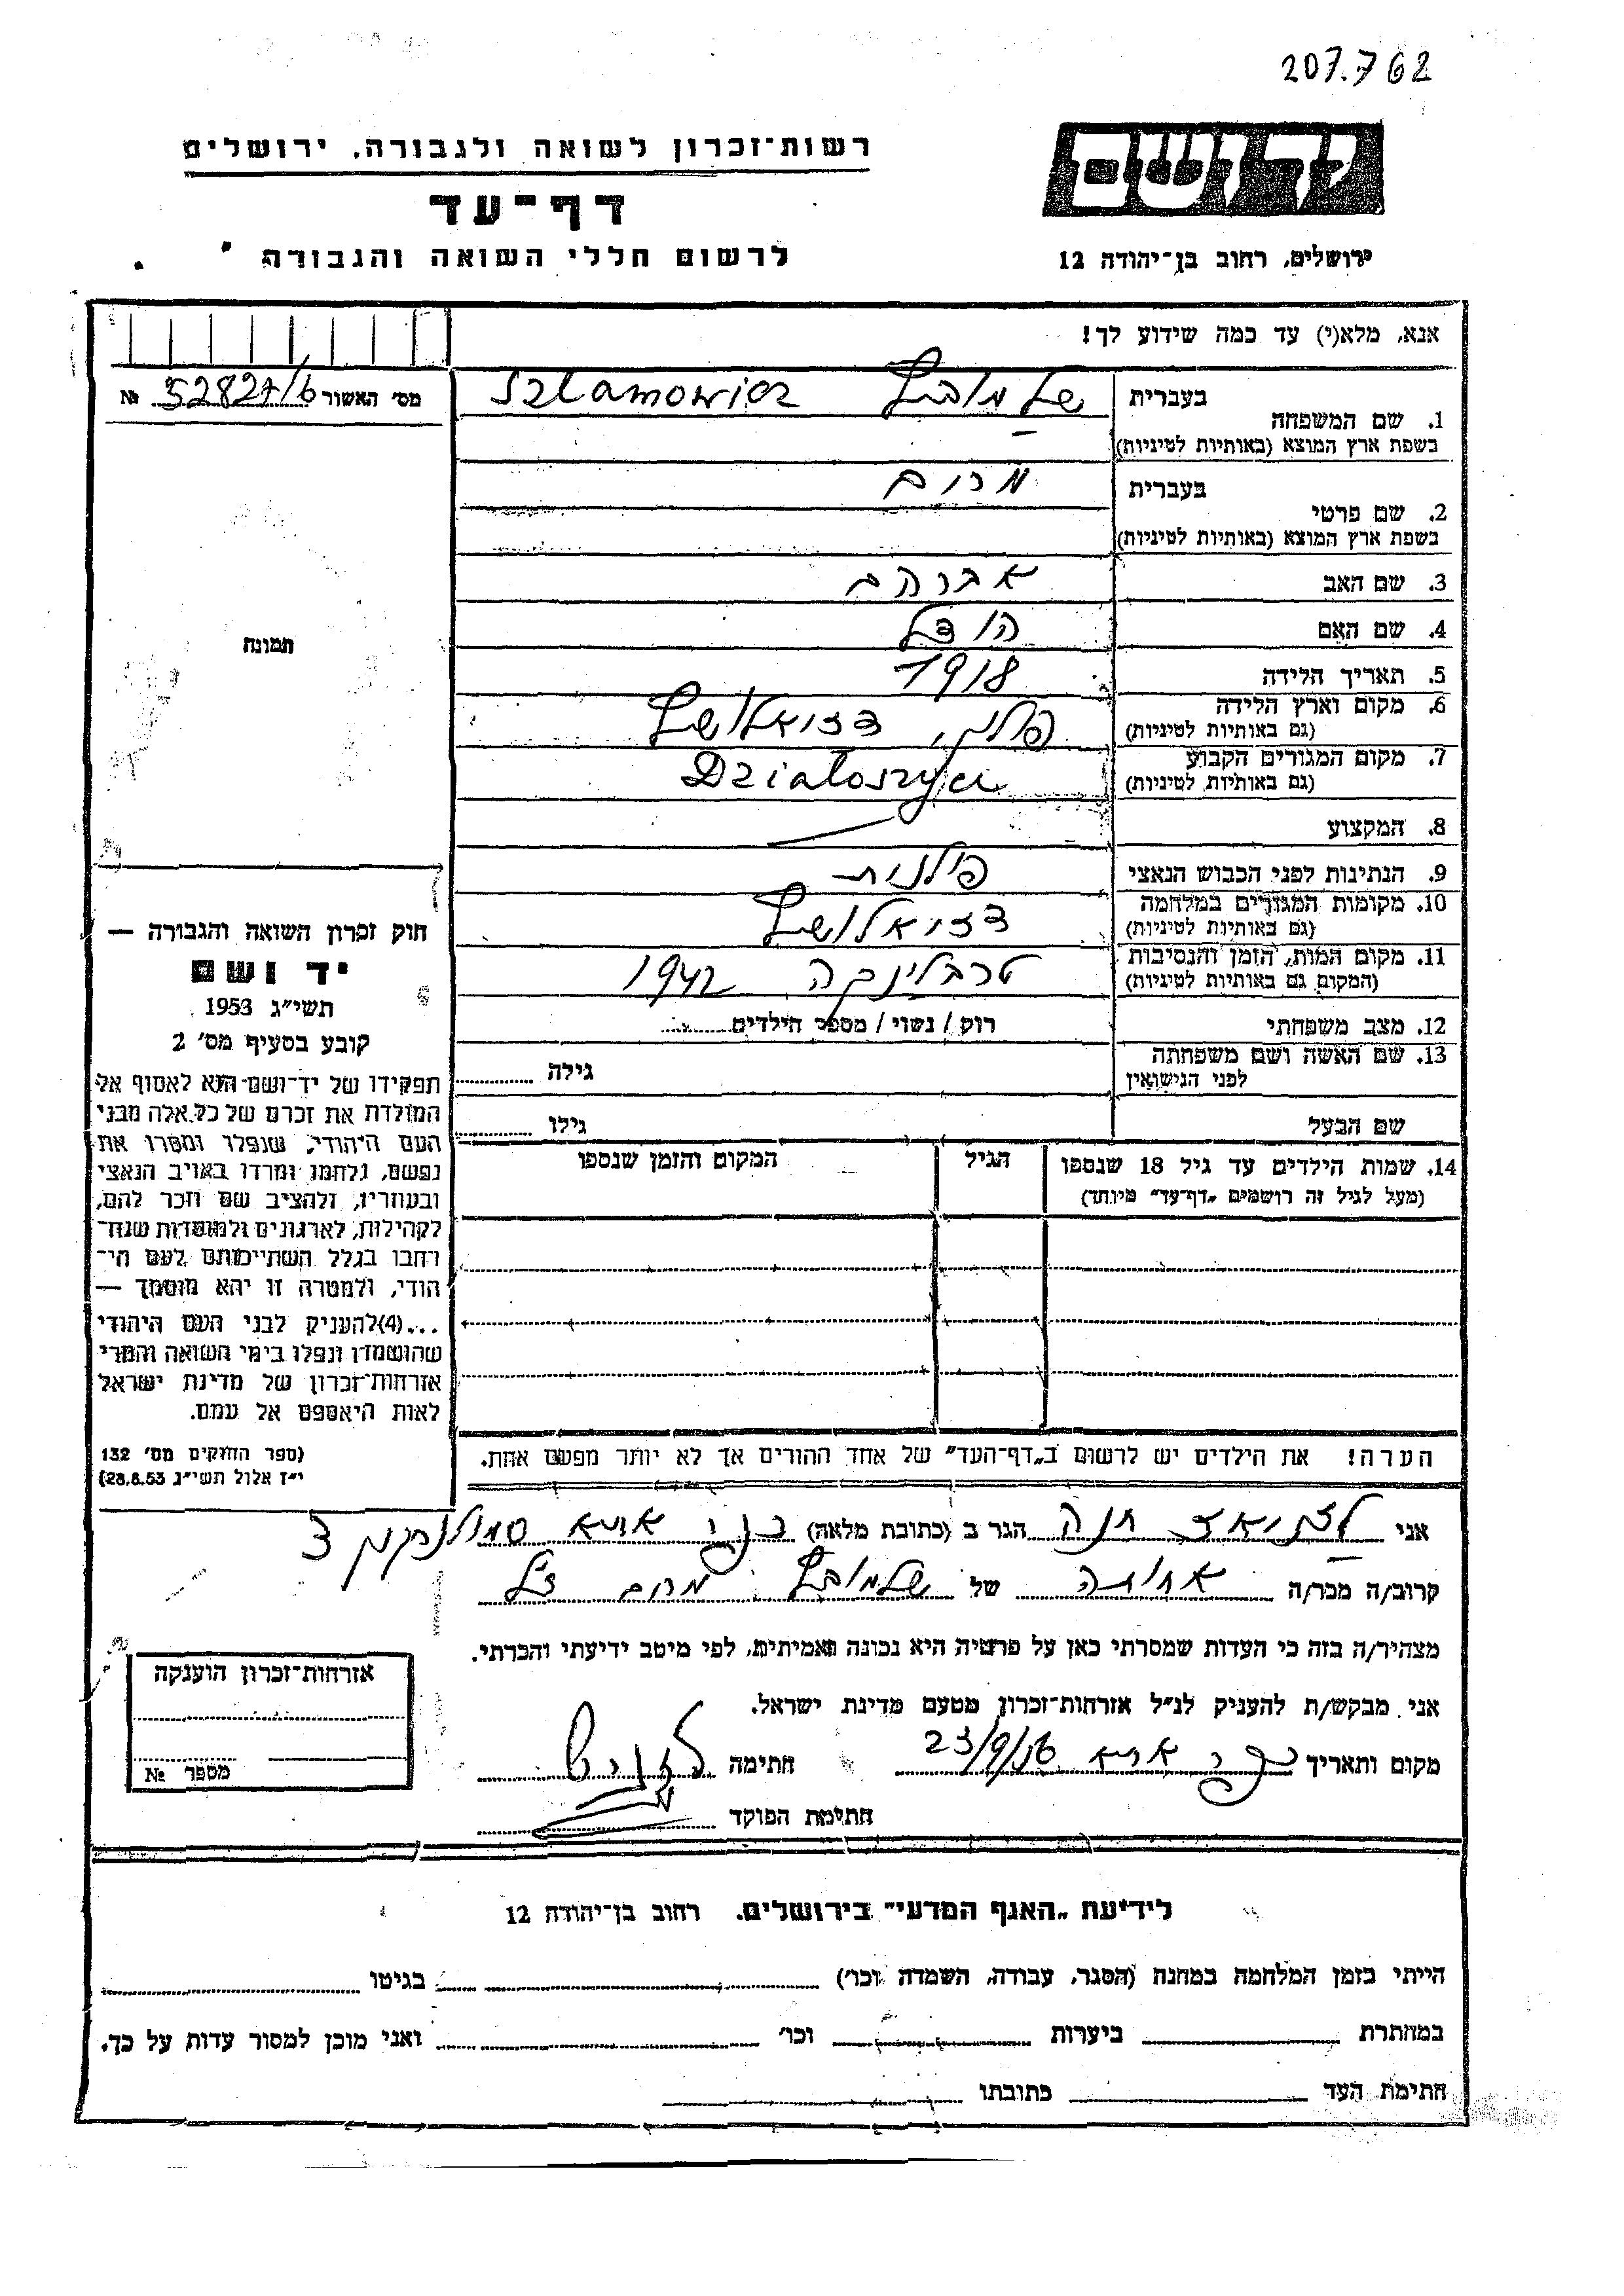 207.762
רשות-זכרון לשואה ולגבורה, ירושלים
ידושם
דף-עד
לרשום חללי השואה והגבורה
ירושלים, רחוב בן-יהודה 12
אנא, מלא(י) עד כמה שידוע לך!
מס' האשור 52827/6 №
1. שם המשפחה
בעברית שלמוביץ Szlamowicz
בשפת ארץ המוצא (באותיות לטיניות)
2. שם פרטי
בעברית מרום
בשפת ארץ המוצא (באותיות לטיניות)
3. שם האב אברהם
4. שם האם הודל
תמונה
5. תאריך הלידה 1918
6. מקום וארץ הלידה
(גם באותיות לטיניות) פולין,
7. מקום המגורים הקבוע
(גם באותיות לטיניות) Dzialoszyce
8. המקצוע
9. הנתינות לפני הכבוש הנאצי פולנית
10. מקומות המגורים במלחמה
(גם באותיות לטיניות)
11. מקום המות, הזמן והנסיבות
(המקום גם באותיות לטיניות) טרבלינקה 1942
12. מצב משפחתי רוק / נשוי / מספר הילדים
13. שם האשה ושם משפחתה
לפני הנישואין גילה
שם הבעל גילו
14. שמות הילדים עד גיל 18 שנספו הגיל המקום והזמן שנספו
(מעל לגיל זה רושמים "דף-עד" מיוחד)
חוק זכרון השואה והגבורה —
יד ושם
תשי"ג 1953
קובע בסעיף מס' 2
תפקידו של יד-ושם הוא לאסוף אל
המולדת את זכרם של כל אלה מבני
העם היהודי, שנפלו ומסרו את
נפשם, נלחמו ומרדו באויב הנאצי
ובעוזריו, ולהציב שם וזכר להם,
לקהילות, לארגונים ולמוסדות שנח-
רבו בגלל השתייכותם לעם הי-
הודי, ולמטרה זו יהא מוסמך —
...(4) להעניק לבני העם היהודי
שהושמדו ונפלו בימי השואה והמרי
אזרחות-זכרון של מדינת ישראל
לאות היאספם אל עמם.
(ספר החוקים מס' 132
י"ז אלול תשי"ג 28.8.53)
הערה! את הילדים יש לרשום ב"דף-העד" של אחד ההורים אך לא יותר מפעם אחת.
אני חנה הגר ב (כתובת מלאה) סמולנסקין 3
קרוב/ה מכר/ה אחותה של שלמוביץ מרום ז"ל
מצהיר/ה בזה כי העדות שמסרתי כאן על פרטיה היא נכונה ואמיתית, לפי מיטב ידיעתי והכרתי.
אני מבקש/ת להעניק לנ"ל אזרחות-זכרון מטעם מדינת ישראל.
מקום ותאריך 23/9/56 חתימה
חתימת הפוקד
אזרחות-זכרון הוענקה
מספר №
לידיעת "האגף המדעי" בירושלים, רחוב בן-יהודה 12
הייתי בזמן המלחמה במחנה (הסגר, עבודה, השמדה וכו') בגיטו
במחתרת ביערות וכו' ואני מוכן למסור עדות על כך.
חתימת העד כתובתו